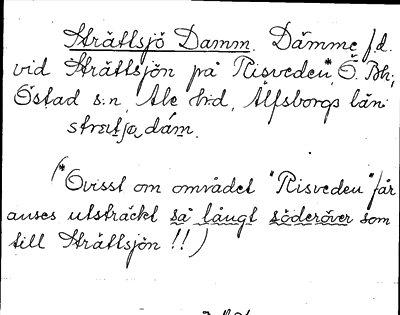 Strättsjö Damm. Dämme f.d.
vid Strättsjön på Risveden*, Ö. Bh,
Östad s:n, Ale hd, Älfsborgs län
(*Ovisst om området "Risveden" får
anses utsträckt så långt söderöver som
till Strättsjön !!)